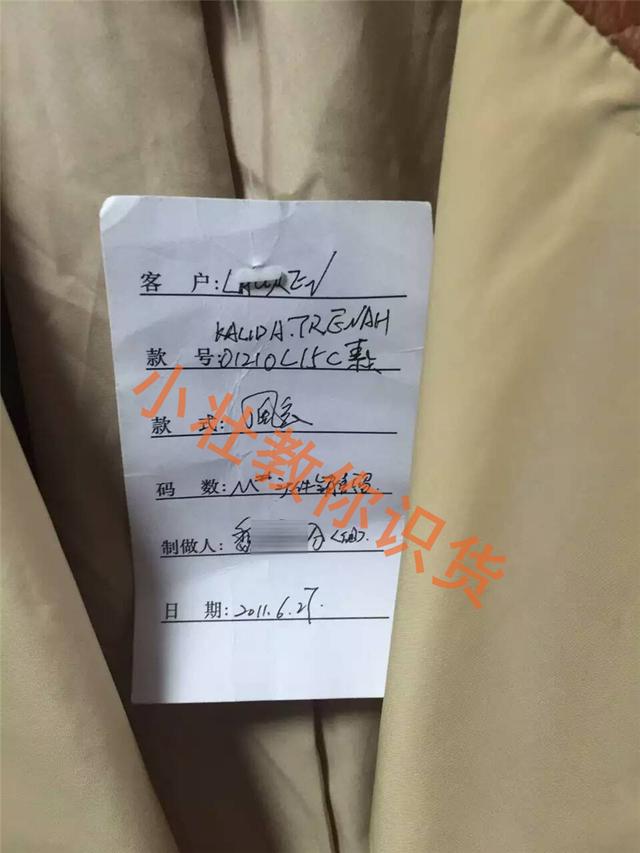 客 户:LAUREN
KALIDA.TRENAH
款 号:01210L15C
款 式:风衣
码 数:M
制做人:
日 期:2011.6.27.
小壮教你识货